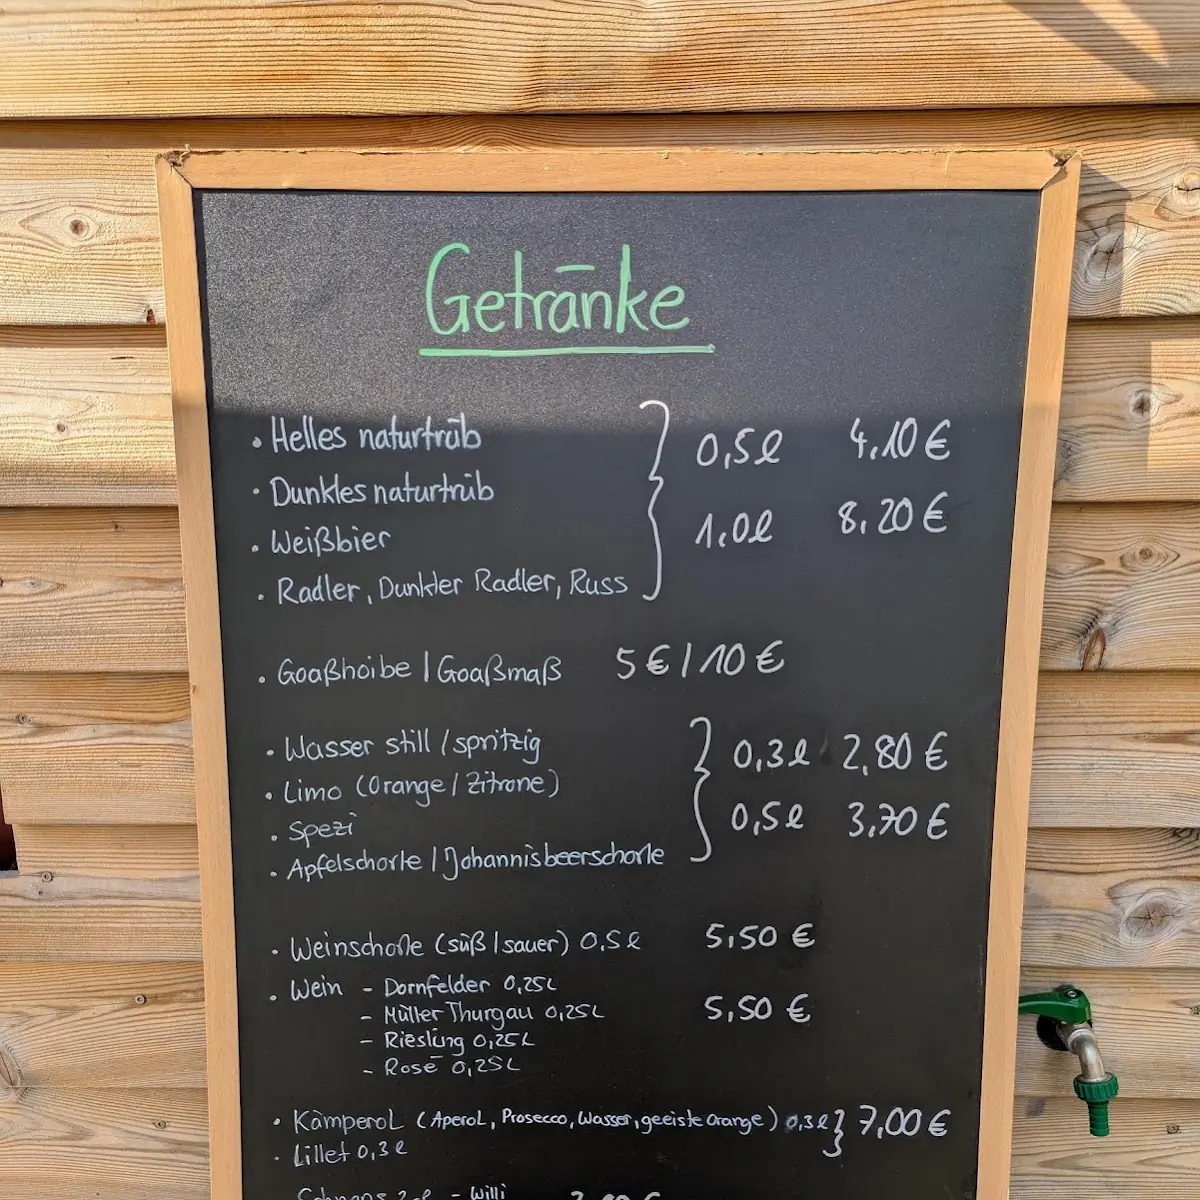 Getränke
• Helles naturtrüb
• Dunkles naturtrüb
0,5l 4,10 €
• Weißbier
1,0l 8,20 €
• Radler, Dunkler Radler, Russ
• Goaßhoibe / Goaßmaß 5 € / 10 €
• Wasser still / spritzig
0,3l 2,80 €
• Limo (Orange / Zitrone)
• Spezi
0,5l 3,70 €
• Apfelschorle / Johannisbeerschorle
• Weinschorle (süß / sauer) 0,5l 5,50 €
• Wein - Dornfelder 0,25L
- Müller Thurgau 0,25L 5,50 €
- Riesling 0,25L
- Rosé 0,25L
• Kämperol (Aperol, Prosecco, Wasser, geeiste Orange) 0,3l 7,00 €
• Lillet 0,3l
- Willi